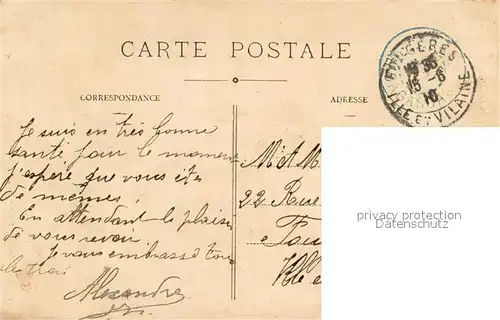 CARTE POSTALE
FOUGÈRES
15 -6
10
ILLE ET VILAINE
CORRESPONDANCE
ADRESSE
Je suis en très bonne
santé pour le moment
j'espère que vous êtes
de mêmes,
En attendant le plaisir
de vous revoir
Je vous embrasse tous
Alexandre
M A M
22 Rue
Fou
Ille e
privacy protection
Datenschutz